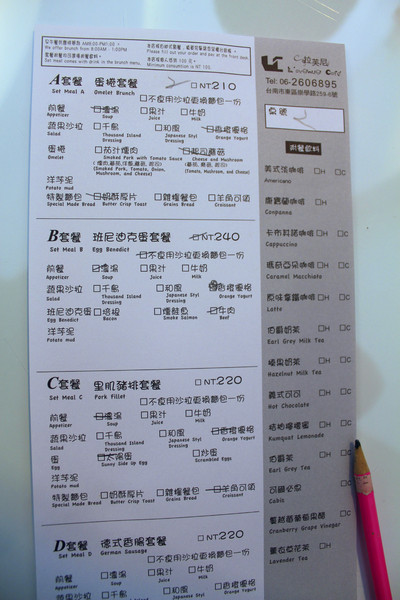 We offer branch from 9:00AM - 1:00PM
Set meal comes with drink in the branch menu.
Please fill out your order and pay at the front desk
Minimum consumption is NT 100.
Tel: 06-2606895
台南市東區崇學路259-6號
桌號
附餐飲料
A套餐 蛋捲套餐 □NT210
Set Meal A Omelet Brunch
□不食用沙拉更換麵包一份
前餐 □濃湯 □果汁 □牛奶
Appetizer Soup Juice Milk
蔬果沙拉 □千島 □和風 □香橙優格
Salad Thousand Island Dressing Japanese Styl Dressing Orange Yogurt
蛋捲 □茄汁燻肉 □起司蘑菇
Omelet Smoked Pork with Tomato Sauce Cheese and Mushroom
(Smoked Pork, Tomato, Onion, Mushroom, and Cheese) (Tomato, Mushroom, and Cheese)
洋芋泥
Potato mud
特製麵包 □奶酥厚片 □雜糧餐包 □羊角可頌
Special Made Bread Butter Crisp Toast Grains Bread Croissant
B套餐 班尼迪克蛋套餐 □NT240
Set Meal B Egg Benedict
□不食用沙拉更換麵包一份
前餐 □濃湯 □果汁 □牛奶
Appetizer Soup Juice Milk
蔬果沙拉 □千島 □和風 □香橙優格
Salad Thousand Island Dressing Japanese Styl Dressing Orange Yogurt
班尼迪克蛋 □培根 □燻鮭魚 □牛肉
Egg Benedict Bacon Smoke Salmon Beef
洋芋泥
Potato mud
C套餐 里肌豬排套餐 □NT220
Set Meal C Pork Fillet
□不食用沙拉更換麵包一份
前餐 □濃湯 □果汁 □牛奶
Appetizer Soup Juice Milk
蔬果沙拉 □千島 □和風 □香橙優格
Salad Thousand Island Dressing Japanese Styl Dressing Orange Yogurt
蛋 □太陽蛋 □炒蛋
Egg Sunny Side Up Egg Scrambled Eggs
洋芋泥
Potato mud
特製麵包 □奶酥厚片 □雜糧餐包 □羊角可頌
Special Made Bread Butter Crisp Toast Grains Bread Croissant
D套餐 德式香腸套餐 □NT220
Set Meal D German Sausage
□不食用沙拉更換麵包一份
前餐 □濃湯 □果汁 □牛奶
Appetizer Soup Juice Milk
蔬果沙拉 □千島 □和風 □香橙優格
美式咖啡 □H □C
Americano
康寶蘭咖啡 □H
Conpanna
卡布其諾咖啡 □H □C
Cappuccino
瑪奇亞朵咖啡 □H □C
Caramel Macchiato
原味拿鐵咖啡 □H □C
Latte
伯爵奶茶 □H □C
Earl Grey Milk Tea
榛果奶茶 □H □C
Hazelnut Milk Tea
義式可可 □H □C
Hot Chocolate
桔柏檸檬蜜 □H □C
Kumquat Lemonade
伯爵茶 □H □C
Earl Grey Tea
可爾必思 □C
Calis
蔓越莓葡萄果醋 □C
Cranberry Grape Vinegar
薰衣草花茶 □H
Lavender Tea